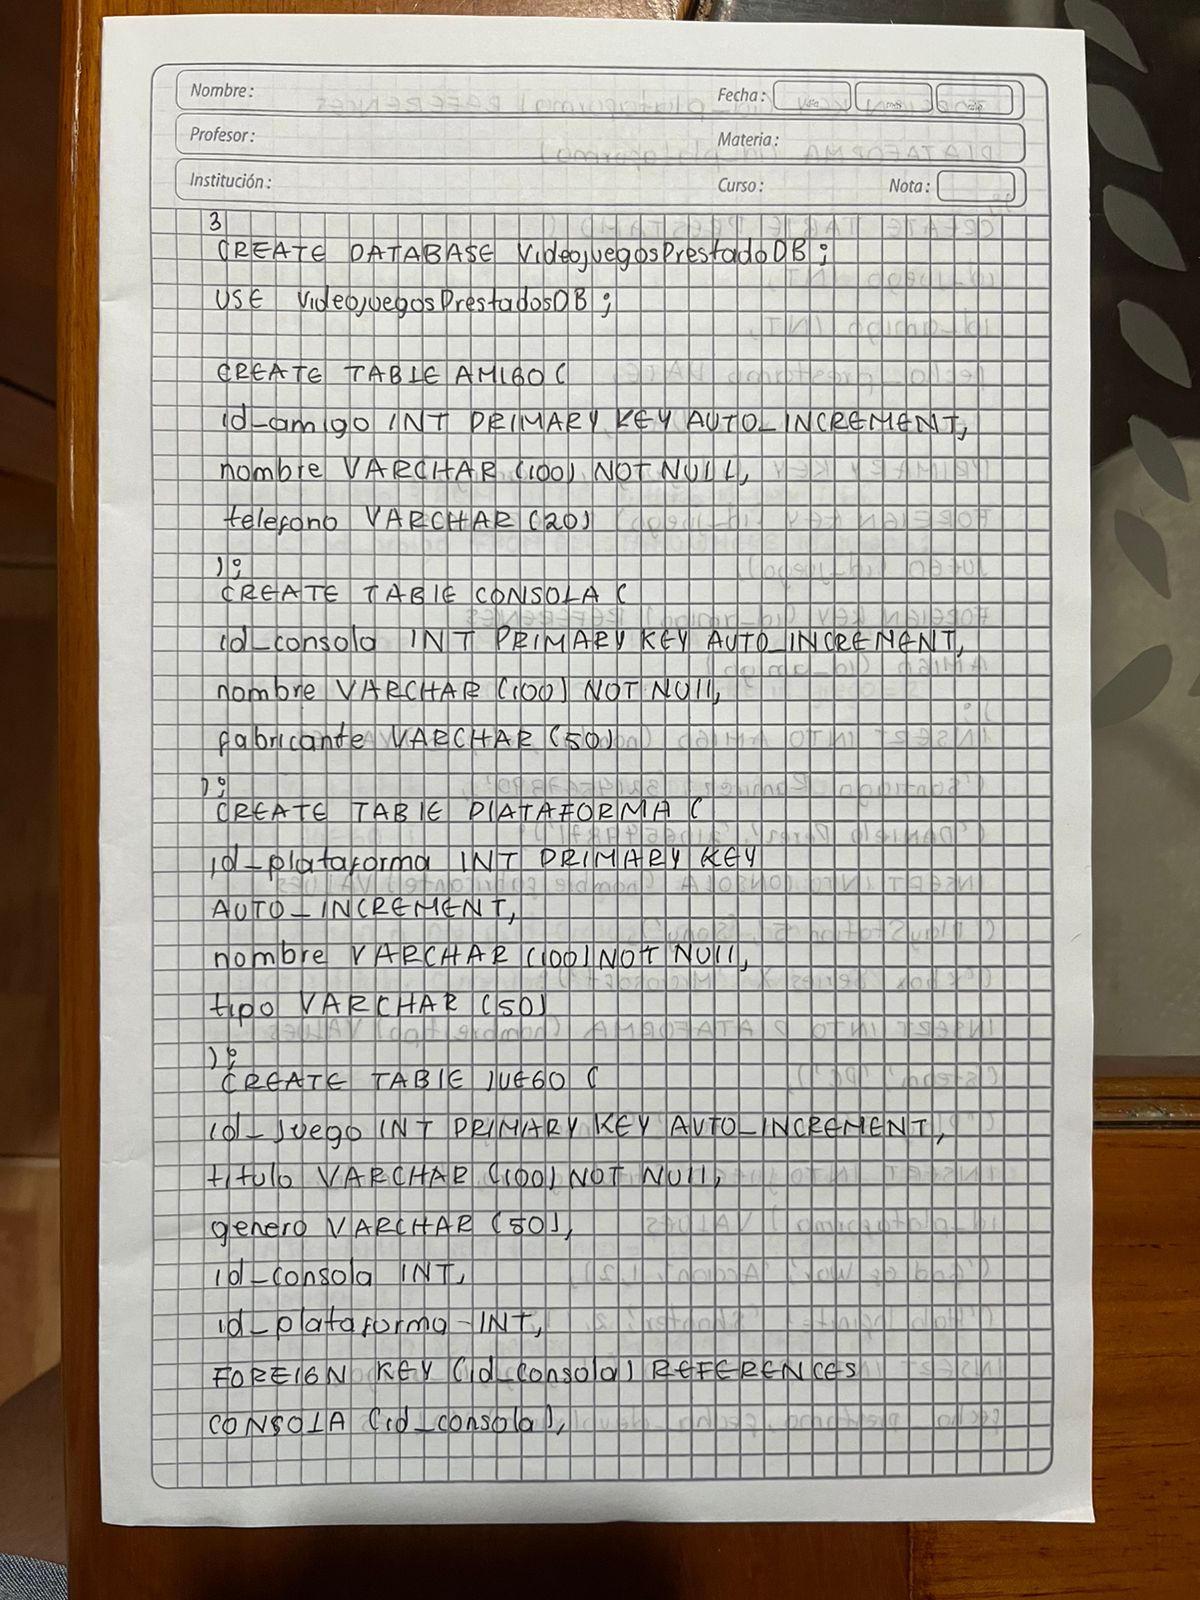 Nombre:
Fecha:
Profesor:
Materia:
Institución:
Curso:
Nota:
3
CREATE DATABASE VideojuegosPrestadoDB;
USE VideojuegosPrestadosDB;
CREATE TABLE AMIGO (
id_amigo INT PRIMARY KEY AUTO_INCREMENT,
nombre VARCHAR (100) NOT NULL,
telefono VARCHAR (20)
);
CREATE TABLE CONSOLA (
id_consola INT PRIMARY KEY AUTO_INCREMENT,
nombre VARCHAR (100) NOT NULL,
fabricante VARCHAR (50)
);
CREATE TABLE PLATAFORMA (
id_plataforma INT PRIMARY KEY
AUTO_INCREMENT,
nombre VARCHAR (100) NOT NULL,
tipo VARCHAR (50)
);
CREATE TABLE JUEGO (
id_juego INT PRIMARY KEY AUTO_INCREMENT,
titulo VARCHAR (100) NOT NULL,
genero VARCHAR (50),
id_consola INT,
id_plataforma INT,
FOREIGN KEY (id_consola) REFERENCES
CONSOLA (id_consola),